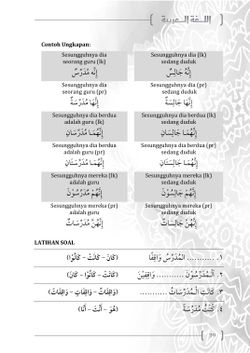 اللغة العربية
Contoh Ungkapan:
Sesungguhnya dia
seorang guru (lk)
إِنَّهُ مُدَرِّسٌ
Sesungguhnya dia (lk)
sedang duduk
إِنَّهُ جَالِسٌ
Sesungguhnya dia
seorang guru (pr)
إِنَّهَا مُدَرِّسَةٌ
Sesungguhnya dia (pr)
sedang duduk
إِنَّهَا جَالِسَةٌ
Sesungguhnya dia berdua
adalah guru (lk)
إِنَّهُمَا مُدَرِّسَانِ
Sesungguhnya dia berdua (lk)
sedang duduk
إِنَّهُمَا جَالِسَانِ
Sesungguhnya dia berdua
adalah guru (pr)
إِنَّهُمَا مُدَرِّسَتَانِ
Sesungguhnya dia berdua (pr)
sedang duduk
إِنَّهُمَا جَالِسَتَانِ
Sesungguhnya mereka (lk)
adalah guru
إِنَّهُمْ مُدَرِّسُوْنَ
Sesungguhnya mereka (lk)
sedang duduk
إِنَّهُمْ جَالِسُوْنَ
Sesungguhnya mereka (pr)
adalah guru
إِنَّهُنَّ مُدَرِّسَاتٌ
Sesungguhnya mereka (pr)
sedang duduk
إِنَّهُنَّ جَالِسَاتٌ
LATIHAN SOAL
١. ............ المُدَرِّسُ وَاقِفًا (كَانَ – كَانَتْ – كَانُوْا)
٢. اَلْمُدَرِّسُوْنَ ............ وَاقِفِيْنَ (كَانَتْ – كَانُوْا – كَانَ)
٣. كَانَتِ الْمُدَرِّسَاتُ ............ (وَاقِفَةً – وَاقِفَاتٍ – وَاقِفَاتٌ)
٤. كُنْتُ مُدَرِّسَةً (هُوَ – أَنْتَ – أَنَا)